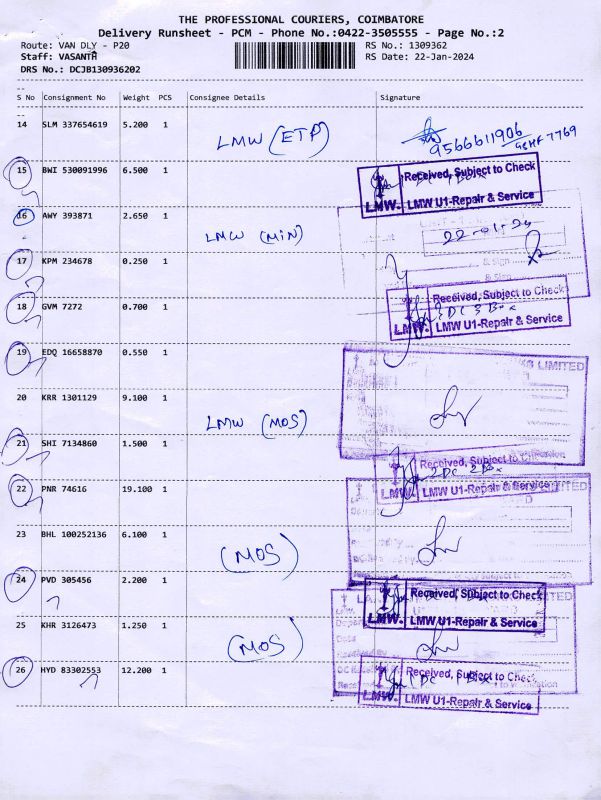 THE PROFESSIONAL COURIERS, COIMBATORE
Delivery Runsheet - PCM - Phone No.:0422-3505555 - Page No.:2
Route: VAN DLY - P20 RS No.: 1309362
Staff: VASANTH RS Date: 22-Jan-2024
DRS No.: DCJB130936202
S No Consignment No Weight PCS Consignee Details Signature
14 SLM 337654619 5.200 1 LMW (ETP)
9566611906
15 BWI 530091996 6.500 1
Received, Subject to Check
LMW. LMW U1-Repair & Service
16 AWY 393871 2.650 1 LMW (MIN)
22-01-24
17 KPM 234678 0.250 1
& Sign
18 GVM 7272 0.700 1
Received, Subject to Check
LMW. LMW U1-Repair & Service
19 EDQ 16658870 0.550 1
LIMITED
20 KRR 1301129 9.100 1 LMW (MOS)
21 SHI 7134860 1.500 1
Received, Subject to
22 PNR 74616 19.100 1
LMW. LMW U1-Repair & Service
23 BHL 100252136 6.100 1 (MOS)
24 PVD 305456 2.200 1
Received, Subject to Check
LMW. LMW U1-Repair & Service
25 KHR 3126473 1.250 1 (MOS)
26 HYD 83302553 12.200 1
Received, Subject to Check
LMW. LMW U1-Repair & Service